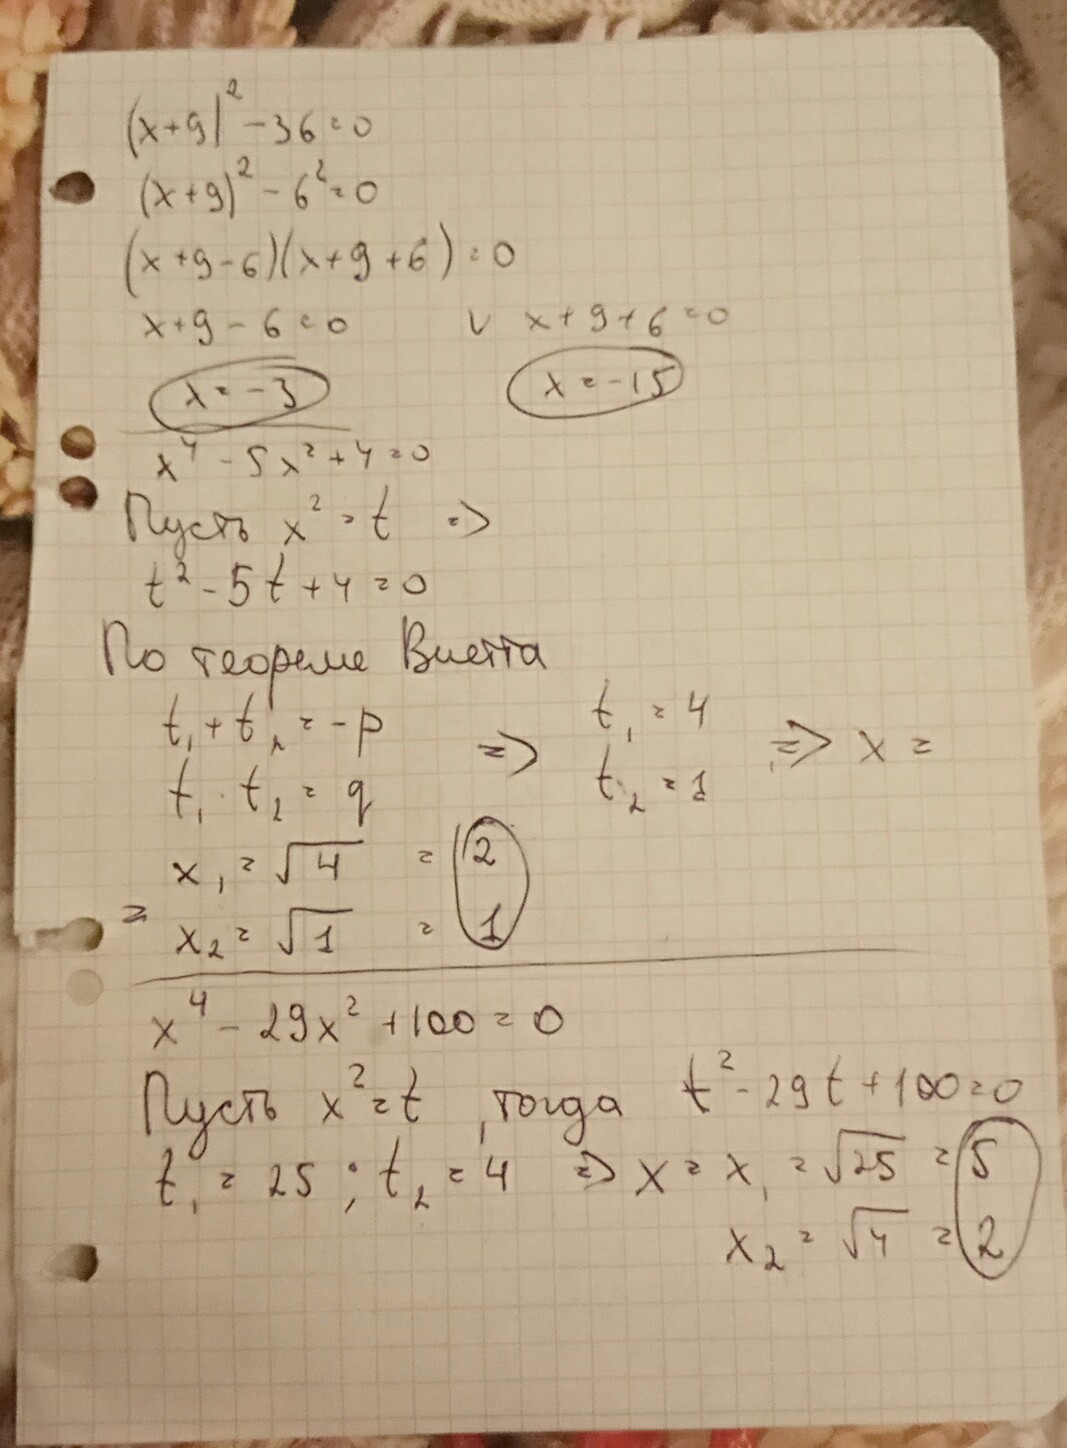 (x+9)² -36=0
(x+9)² - 6²=0
(x+9-6)(x+9+6)=0
x+9-6=0 ∨ x+9+6=0
x=-3 x=-15
x⁴-5x²+4=0
Пусть x²=t =>
t²-5t+4=0
По теореме Виетта
t₁+t₂=-p => t₁=4 => x=
t₁·t₂=q t₂=1
x₁=√4 =2
= x₂=√1 =1
x⁴-29x²+100=0
Пусть x²=t, тогда t²-29t+100=0
t₁=25; t₂=4 => x= x₁=√25=5
x₂=√4=2